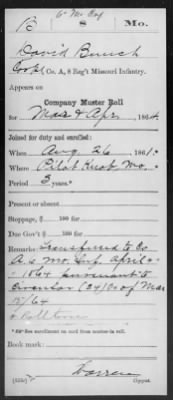 6" Mo Inf
B 8 Mo.
David Bunch
Corpl, Co. A, 8 Reg't Missouri Infantry.
Appears on
Company Muster Roll
for Mar & Apr, 1864.
Joined for duty and enrolled:
When Aug 26, 1861.
Where Pilot Knob Mo.
Period 3 years.*
Present or absent
Stoppage, $ 100 for
Due Gov't $ 100 for
Remarks: Transferred to Co
A 6 Mo. Inf. April
1864 pursuant to
Circular of Mar
15/64
Book mark:
(358c)
Copyist.